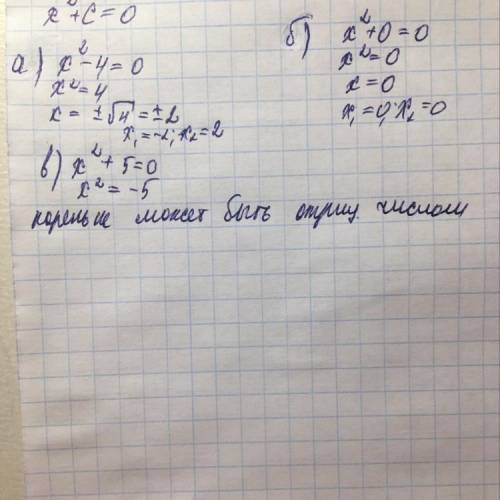 x² + C = 0
а) x² - 4 = 0
x² = 4
x = ±√4 = ±2
x₁ = -2; x₂ = 2
б) x² + 0 = 0
x² = 0
x = 0
x₁ = 0; x₂ = 0
в) x² + 5 = 0
x² = -5
корень не может быть отриц. числом